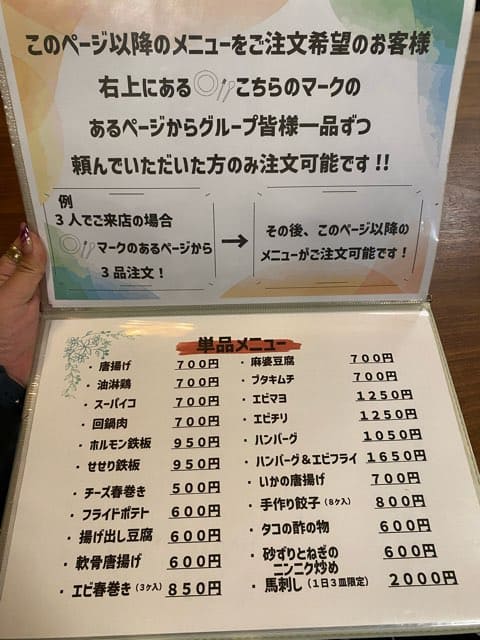 このページ以降のメニューをご注文希望のお客様
右上にあるこちらのマークの
あるページからグループ皆様一品ずつ
頼んでいただいた方のみ注文可能です!!
例
3人でご来店の場合
マークのあるページから
3品注文!
→
その後、このページ以降の
メニューがご注文可能です!
単品メニュー
・唐揚げ 700円
・油淋鶏 700円
・スーパイコ 700円
・回鍋肉 700円
・ホルモン鉄板 950円
・せせり鉄板 950円
・チーズ春巻き 500円
・フライドポテト 600円
・揚げ出し豆腐 600円
・軟骨唐揚げ 600円
・エビ春巻き(3ケ入) 850円
・麻婆豆腐 700円
・ブタキムチ 700円
・エビマヨ 1250円
・エビチリ 1250円
・ハンバーグ 1050円
・ハンバーグ&エビフライ 1650円
・いかの唐揚げ 700円
・手作り餃子(8ケ入) 800円
・タコの酢の物 600円
・砂ずりとねぎの 600円
ニンニク炒め
・馬刺し(1日3皿限定) 2000円